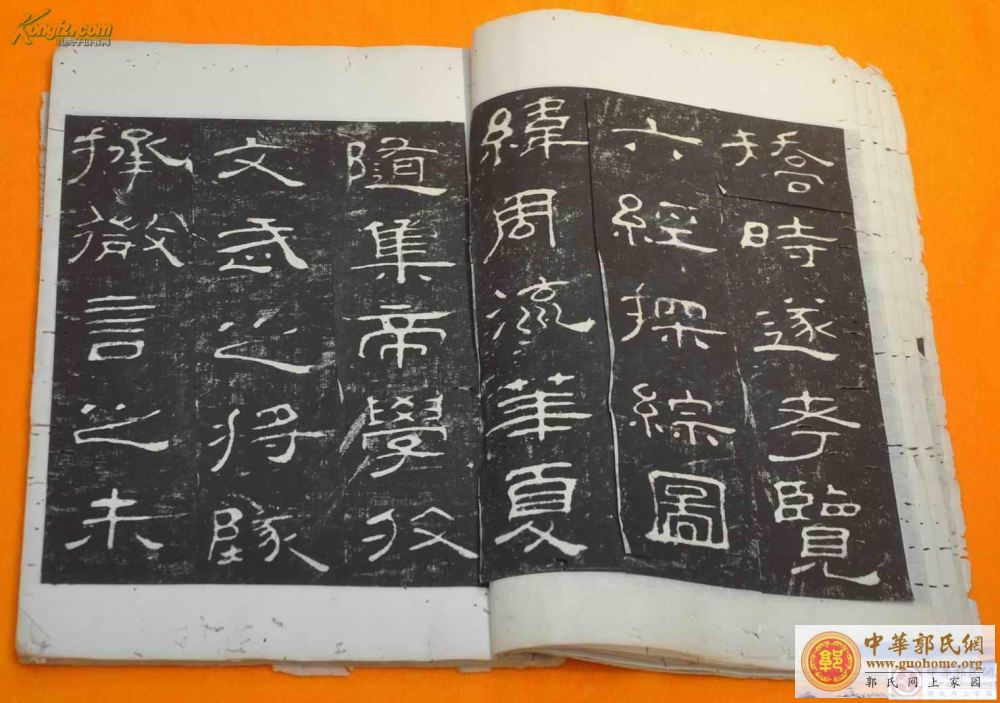 撟時遂考覽
六經探綜圖
緯周流華夏
隨集帝學收
文武之將墜
拯微言之未
Kongfz.com
孔夫子旧书网
中華郭氏網
www.guohome.org
郭氏网上家园